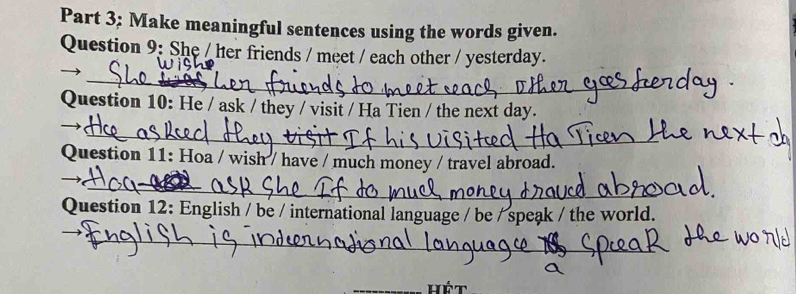 Part 3: Make meaningful sentences using the words given.
Question 9: She / her friends / meet / each other / yesterday.
wishe
→ She was her friends to meet each other yesterday.
Question 10: He / ask / they / visit / Ha Tien / the next day.
→ Hee asked they visit If his visited Ha Ticen the next day
Question 11: Hoa / wish / have / much money / travel abroad.
→ Hoa ask she If to much money traved abroad.
Question 12: English / be / international language / be / speak / the world.
→ English is international language speak the world
a
HẾT